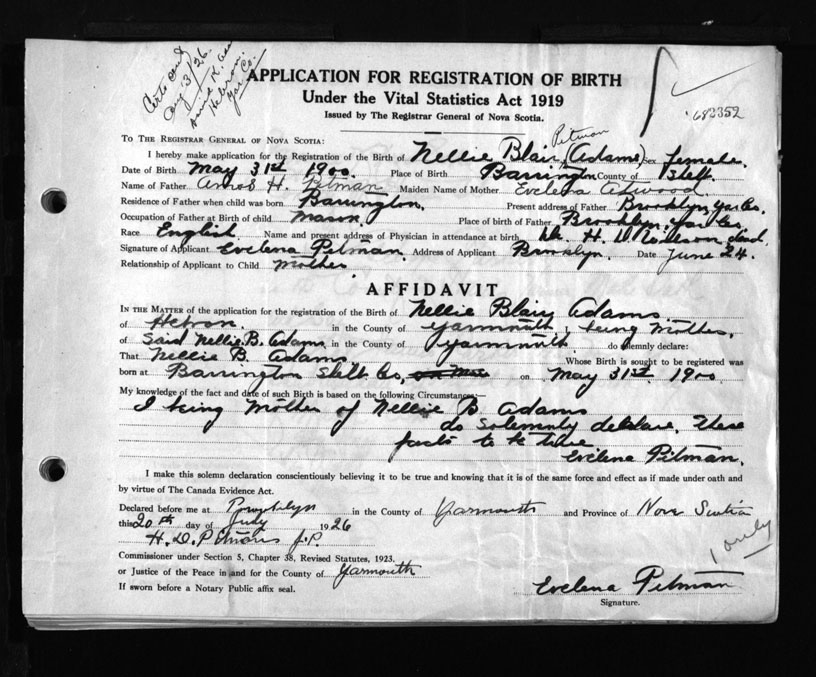 Certs out
Aug 3/26.
Hebron.
Yar. Co.
682352
APPLICATION FOR REGISTRATION OF BIRTH
Under the Vital Statistics Act 1919
Issued by The Registrar General of Nova Scotia.
TO THE REGISTRAR GENERAL OF NOVA SCOTIA:
Pitman
I hereby make application for the Registration of the Birth of Nellie Blair (Adams) Sex female.
Date of Birth May 31st 1900. Place of Birth Barrington County of Shelb.
Name of Father Amos H. Pitman Maiden Name of Mother Evelena Atwood.
Residence of Father when child was born Barrington. Present address of Father Brooklyn, Yar Co.
Occupation of Father at Birth of child Mason. Place of birth of Father Brooklyn, Yar Co.
Race English Name and present address of Physician in attendance at birth Dr. H. D.
Signature of Applicant Evelena Pitman. Address of Applicant Brooklyn. Date June 24.
Relationship of Applicant to Child Mother
AFFIDAVIT
IN THE MATTER of the application for the registration of the Birth of Nellie Blair Adams.
of Hebron. in the County of Yarmouth, being Mother,
of Said Nellie B. Adams in the County of Yarmouth. do solemnly declare:
That Nellie B. Adams. Whose Birth is sought to be registered was
born at Barrington Shelb Co, on May 31st. 1900
My knowledge of the fact and date of such Birth is based on the following Circumstances:—
I being Mother of Nellie B Adams
do Solemnly declare, these
facts to be true
Evelena Pitman.
I make this solemn declaration conscientiously believing it to be true and knowing that it is of the same force and effect as if made under oath and
by virtue of The Canada Evidence Act.
Declared before me at Brooklyn in the County of Yarmouth and Province of Nova Scotia
this 20th day of July 1926
1 only
H. D. J.P.
Commissioner under Section 5, Chapter 38, Revised Statutes, 1923.
or Justice of the Peace in and for the County of Yarmouth
If sworn before a Notary Public affix seal.
Evelena Pitman
Signature.